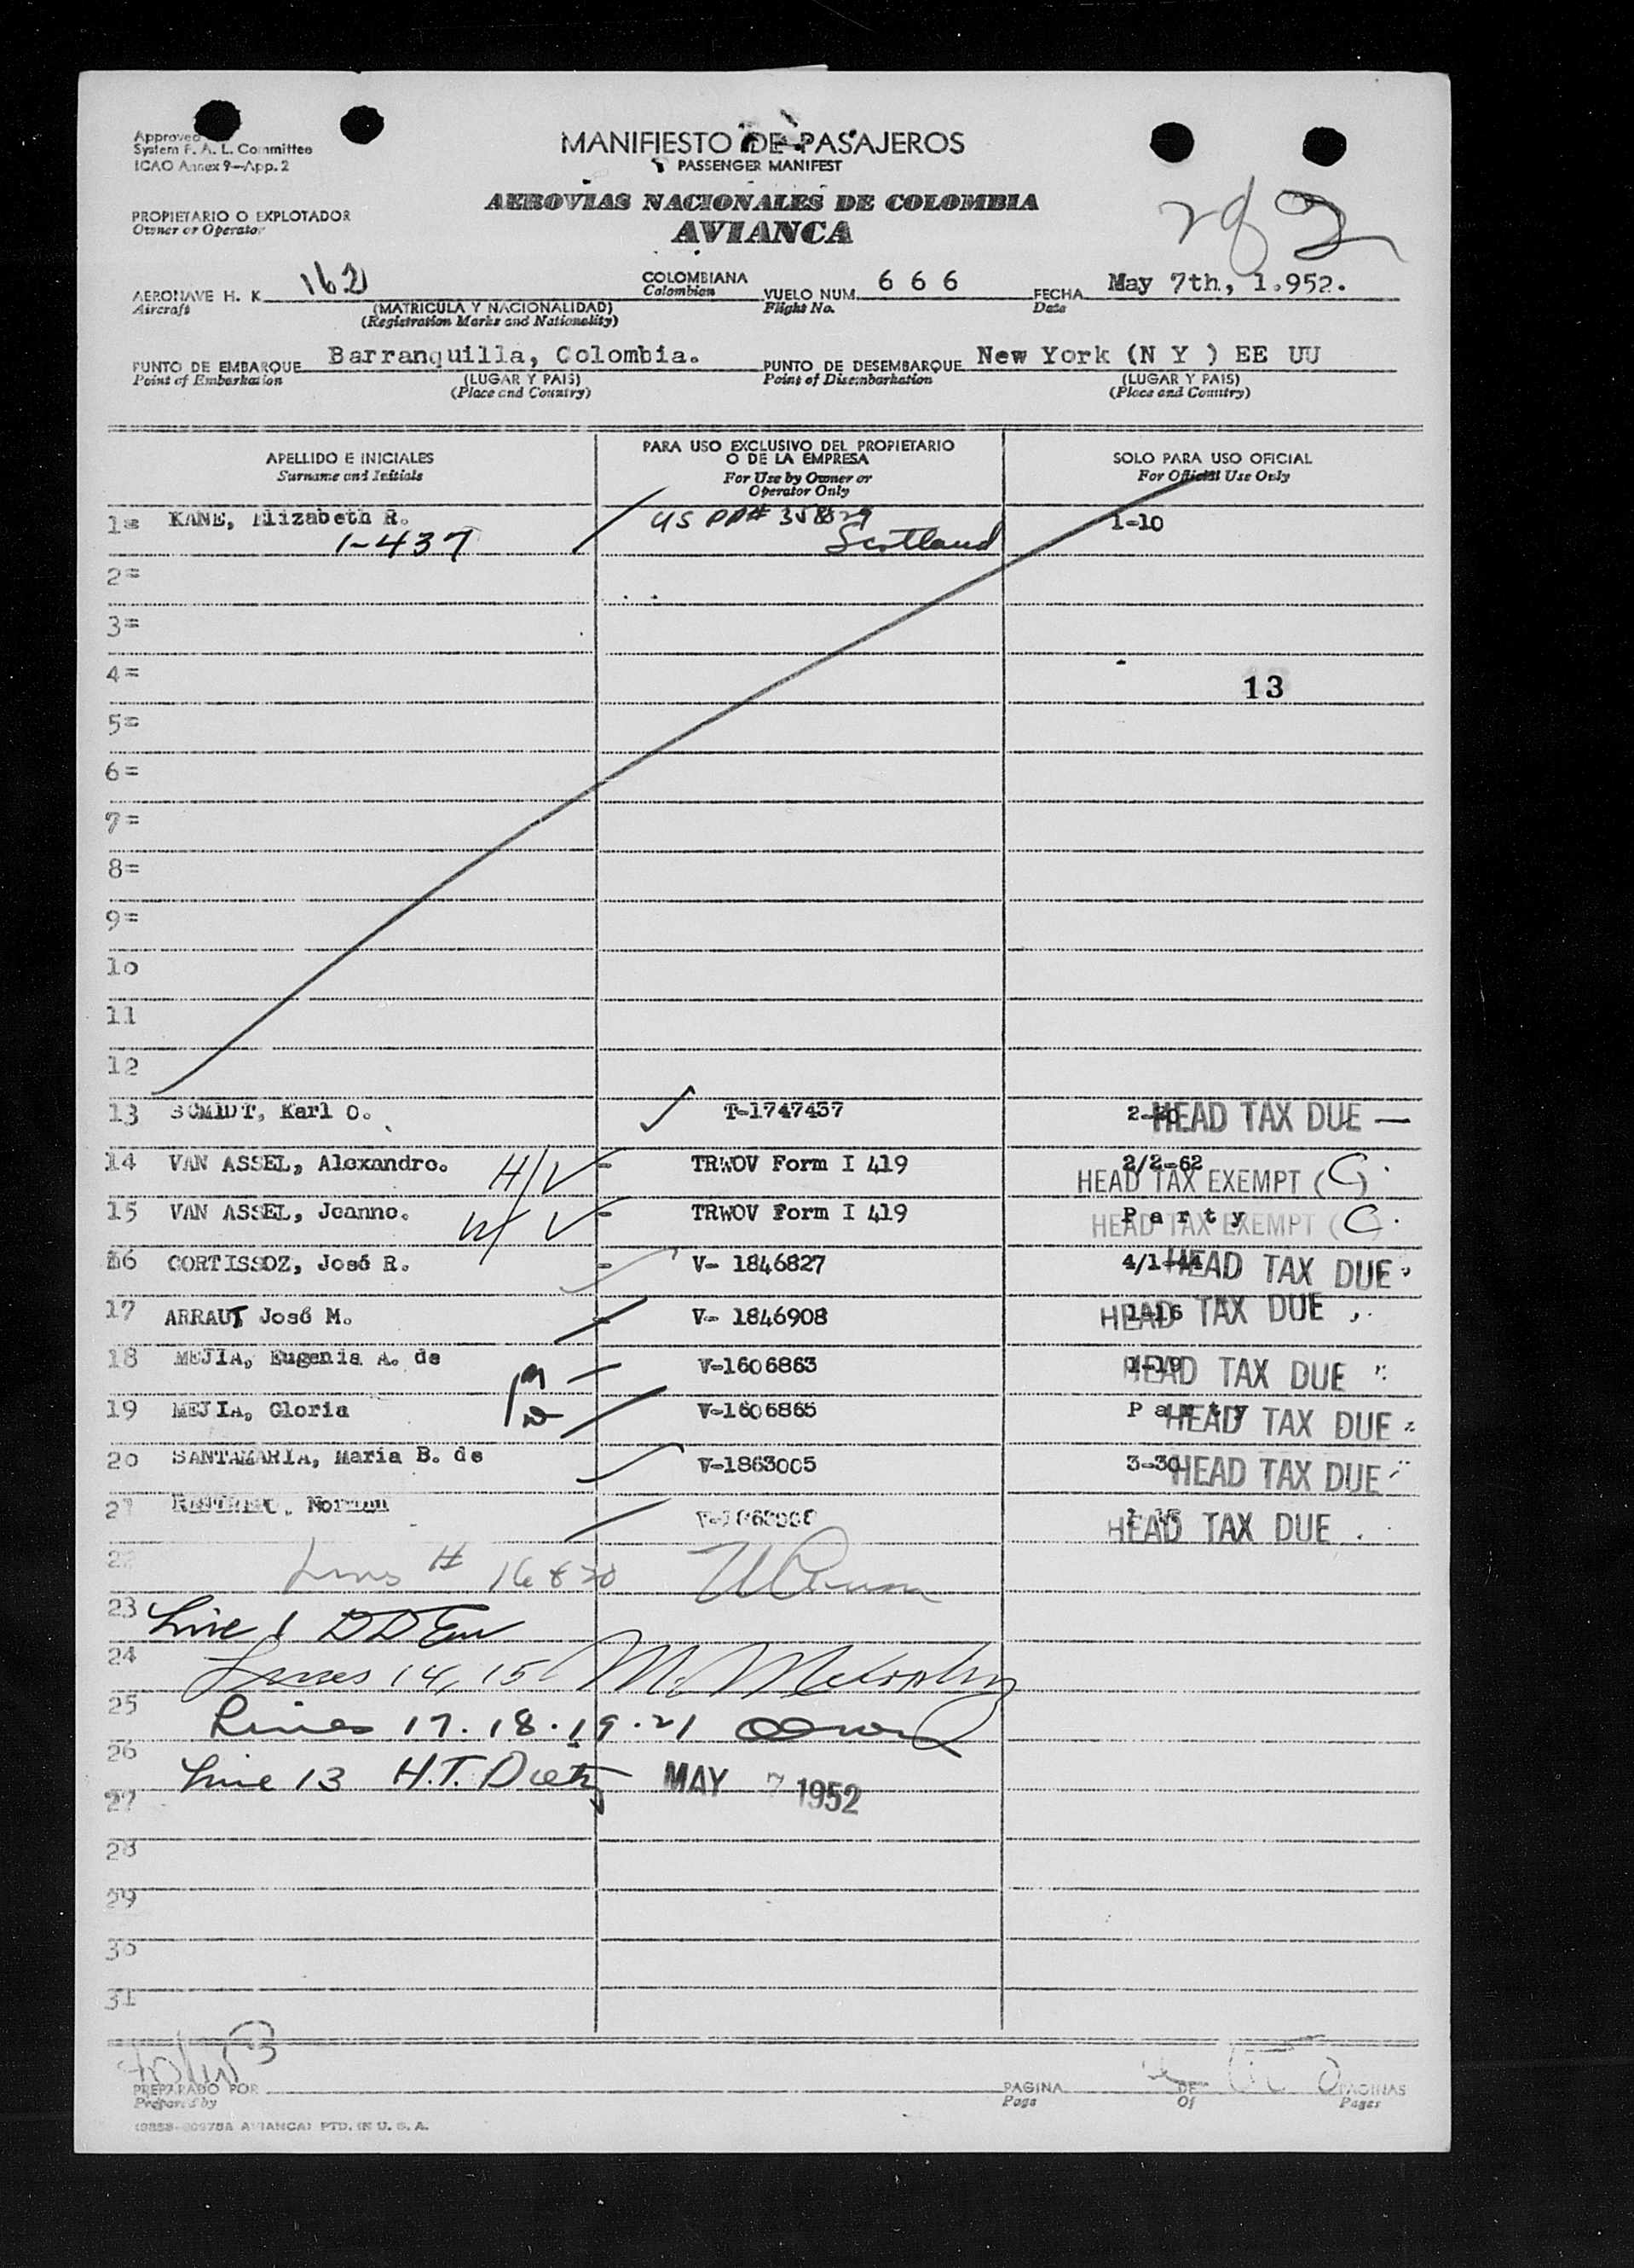 Approved
System F. A. L. Committee
ICAO Annex 9—App. 2
MANIFIESTO DE PASAJEROS
PASSENGER MANIFEST
AEROVIAS NACIONALES DE COLOMBIA
AVIANCA
PROPIETARIO O EXPLOTADOR
Owner or Operator
AERONAVE H. K. 162
Aircraft
(MATRICULA Y NACIONALIDAD)
(Registration Marks and Nationality)
COLOMBIANA
Colombian
VUELO NUM. 6 6 6
Flight No.
FECHA May 7th, 1.952.
Date
PUNTO DE EMBARQUE Barranquilla, Colombia.
Point of Embarkation
(LUGAR Y PAIS)
(Place and Country)
PUNTO DE DESEMBARQUE New York (N Y ) EE UU
Point of Disembarkation
(LUGAR Y PAIS)
(Place and Country)
APELLIDO E INICIALES
Surname and Initials
PARA USO EXCLUSIVO DEL PROPIETARIO
O DE LA EMPRESA
For Use by Owner or
Operator Only
SOLO PARA USO OFICIAL
For Official Use Only
1= KANE, Elizabeth R. US PP# 1-10
1-437 Scotland
2=
3=
4=
13
5=
6=
7=
8=
9=
10
11
12
13 SCMIDT, Karl O. T-1747437 2-20 HEAD TAX DUE —
14 VAN ASSEL, Alexandre. H/ TRWOV Form I 419 2/2-62
HEAD TAX EXEMPT (C)
15 VAN ASSEL, Jeanne. W/ TRWOV Form I 419 P a r t y
HEAD TAX EXEMPT (C)
16 CORTISSOZ, José R. V- 1846827 4/1-44 HEAD TAX DUE
17 ARRAUT José M. V- 1846908 1-16 HEAD TAX DUE
18 MEJIA, Eugenia A. de V-1606863 1-19 HEAD TAX DUE
19 MEJIA, Gloria V-1606865 P a r t y HEAD TAX DUE
20 SANTAMARIA, Maria B. de V-1863005 3-30 HEAD TAX DUE
21 HEAD TAX DUE
22 Lines # 16 & 20
23 Line 1
24 Lines 14, 15
25 Lines 17. 18. 19. 21
26 Line 13 H.T. MAY 7 1952
27
28
29
30
31
PREPARADO POR
Prepared by
PAGINA
Page
DE
Of
PAGINAS
Pages
AVIANCA) PTD. IN U. S. A.